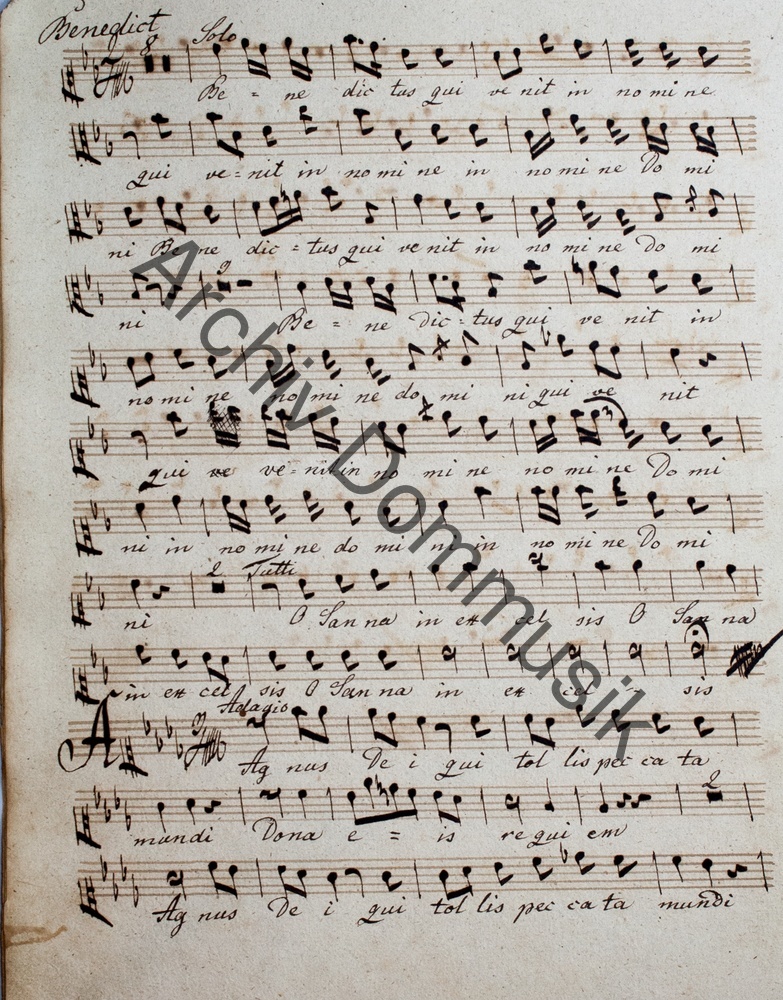 Benedict
8 Solo
Be = ne dic tus qui ve nit in no mi ne
qui ve=nit in no mi ne in no mi ne Do mi
ni Be ne dic = tus qui ve nit in no mi ne Do mi
2
ni Be = ne dic=tus qui ve nit in
no mi ne no mi ne do mi ni qui ve nit
qui ve ve=nit in no mi ne no mi ne Do mi
ni in no mi ne do mi ni in no mi ne Do mi
2 Tutti
ni O San na in ex cel sis O San na
in ex cel sis O San na in ex cel = sis
Adagio
Ag nus De i qui tol lis pec ca ta
2
mundi Dona e = is re qui em
Ag nus De i qui tol lis pec ca ta mundi
Archiv Dommusik